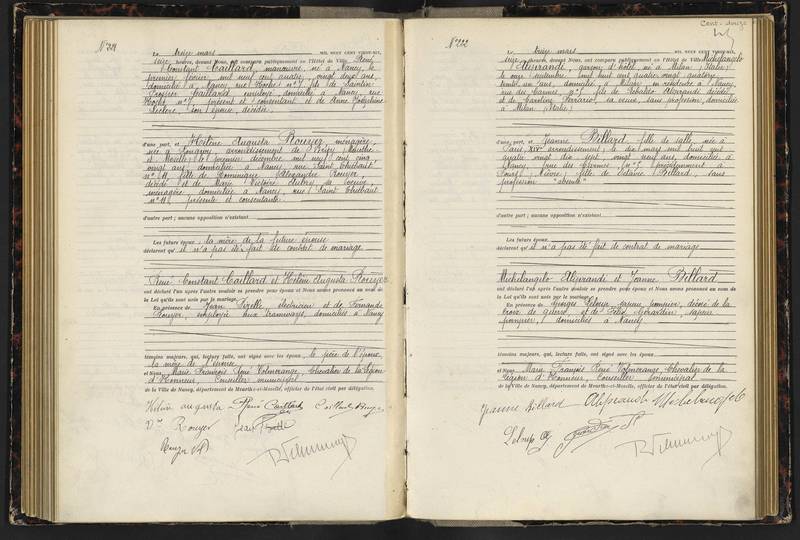 N° 221
Le treize mars MIL NEUF CENT VINGT-SIX,
seize heures, devant Nous, ont comparu publiquement en l'Hôtel de Ville René
Constant Caillard, manœuvre, né à Nancy le
premier février mil neuf cent quatre, vingt deux ans,
domicilié à Nancy, rue Hoche n° 7, fils de
Caillard employé domicilié à Nancy, rue
Hoche n° 7 présent et consentant et de Anne
Leclerc, son épouse, décédée.
d'une part, et Hélène Augusta Rouyer, ménagère,
née à arrondissement de Briey Meurthe
et Moselle, le premier décembre mil neuf cent cinq,
vingt ans, domiciliée à Nancy, rue Saint Thiébaut
n° 11, fille de Alexandre Rouyer,
décédé et de Marie Victoire Aubry, sa veuve,
ménagère, domiciliée à Nancy, rue Saint Thiébaut
n° 11, présente et consentante.
d'autre part ; aucune opposition n'existant
Les futurs époux et la mère de la future épouse
déclarent qu'il n'a pas été fait de contrat de mariage
René Constant Caillard et Hélène Augusta Rouyer
ont déclaré l'un après l'autre vouloir se prendre pour époux et Nous avons prononcé au nom de
la Loi qu'ils sont unis par le mariage.
En présence de Jean électricien et de Fernande
Rouyer, employée aux tramways, domiciliés à Nancy
témoins majeurs, qui, lecture faite, ont signé avec les époux, le père de l'époux,
la mère de l'épouse
et Nous, Marie François René Volmerange, Chevalier de la Légion
d'Honneur, Conseiller municipal
de la Ville de Nancy, département de Meurthe-et-Moselle, officier de l'état civil par délégation.
Hélène augusta René Caillard Caillard
Vve Rouyer Jean
Rouyer
N° 222
Le treize mars MIL NEUF CENT VINGT-SIX,
seize heures, devant Nous, ont comparu publiquement en l'Hôtel de Ville Michelangelo
Aliprandi, garçon d'hôtel, né à Milan (Italie)
le onze mil huit cent quatre vingt quatorze,
trente un ans, domicilié à Milan, en résidence à Nancy,
rue des Carmes n° 5, fils de Aliprandi décédé
et de Caroline Ferrario, sa veuve, sans profession, domiciliée
à Milan (Italie)
d'une part, et Jeanne Billard, fille de salle, née à
Paris XIVe arrondissement le dix mai mil huit cent
quatre vingt dix sept, vingt huit ans, domiciliée à
Nancy, rue des Carmes n° 5 précédemment à
(Nièvre) fille de Octavie Billard, sans
profession "absente"
d'autre part ; aucune opposition n'existant
Les futurs époux
déclarent qu'il n'a pas été fait de contrat de mariage
Michelangelo Aliprandi et Jeanne Billard
ont déclaré l'un après l'autre vouloir se prendre pour époux et Nous avons prononcé au nom de
la Loi qu'ils sont unis par le mariage.
En présence de Georges sapeur pompier, décoré de la
Croix de guerre, et de Félix sapeur
pompier, domiciliés à Nancy
témoins majeurs, qui, lecture faite, ont signé avec les époux
et Nous, Marie François René Volmerange, Chevalier de la
Légion d'Honneur, Conseiller municipal
de la Ville de Nancy, département de Meurthe-et-Moselle, officier de l'état civil par délégation.
Jeanne Billard